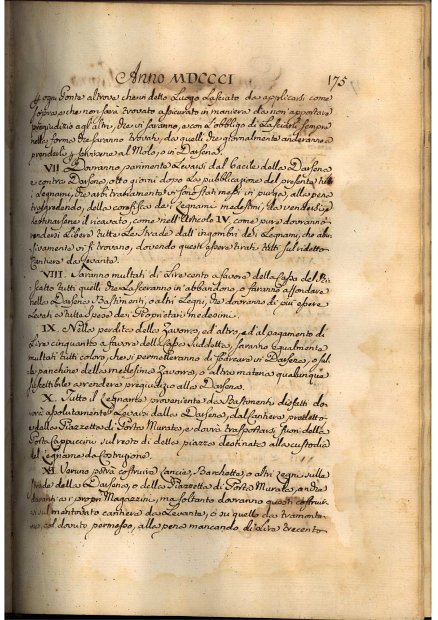 Anno MDCCCI 175
ogni Ponte altrove che in detto Luogo Lasciato da applicarsi come
sopra e che non sarà trovato assicurato in maniera da non apportare
pregiudizio agl'altri, che vi saranno, e con l'obbligo di Lasciarli sempre
nella forma che saranno trovati da quelli che giornalmente anderanno a
prenderli o servirsene al Molo, o in Darsena.
VII Dovranno parimente Levarsi dal bacile della Darsena
e contro Darsena, otto giorni dopo La pubblicazione del presente tutti
i legnami, che arbitrariamente vi sono stati messi in purga, alla pena
trasgredendo, della confisca dei Legnami medesimi, da vendersi, e
destinarsene il ricavato, come nell'Articolo IV, come pure dovranno
rendersi Libere tutte Le Strade dall'ingombri dei Legnami, che abu-
sivamente vi si trovano, dovendo questi essere tirati tutti sul ridetto
Cantiere da Levante.
VIII. Saranno multati di Lire cento a favore della Cassa del Ri-
scatto tutti quelli che Lasceranno in abbandono, o faranno affondare
nella Darsena Bastimenti, o altri Legni, che dovranno di più essere
Levati di sotto a spese dei Proprietari medesimi.
IX. Nella perdita della Zavorra, ed altro, ed al pagamento di
Lire cinquanta a favore della Cassa Suddetta, saranno egualmente
multati tutti coloro, che si permetteranno di scaricare in Darsena, o sul-
le panchine della medesima Zavorra, o altra materia qualunque
suscettibile a rendere pregiudizio alla Darsena.
X. Tutto il Legname proveniente da Bastimenti disfatti do-
vrà assolutamente Levarsi dalla Darsena, dal cantiere predetto
e dalla Piazzetta di Porto Murato, e dovrà trasportarsi fuori della
Porta Cappuccini sul resto di detta piazza destinata alla custodia
del Legname da Costruzione.
XI. Veruno potrà costruire Lancie, Barchette, o altri Legni sulle
strade della Darsena, o della Piazzetta di Porto Murato, anche
davanti ai propri Magazzini, ma soltanto dovranno questi costruir-
si sul mentovato cantiere da Levante, o su quello da tramonta-
na, col dovuto permesso, alla pena mancando di Lire trecento